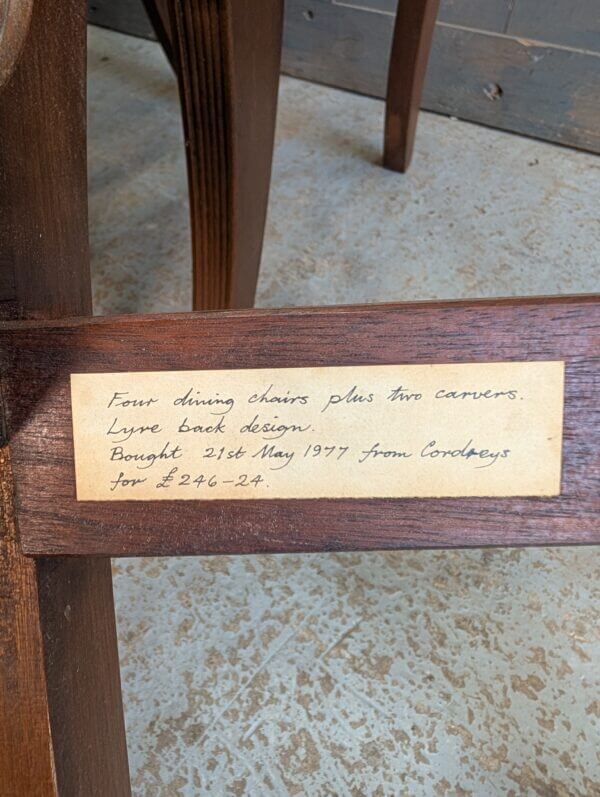 Four dining chairs plus two carvers.
Lyre back design.
Bought 21st May 1977 from Cordreys
for £246-24.